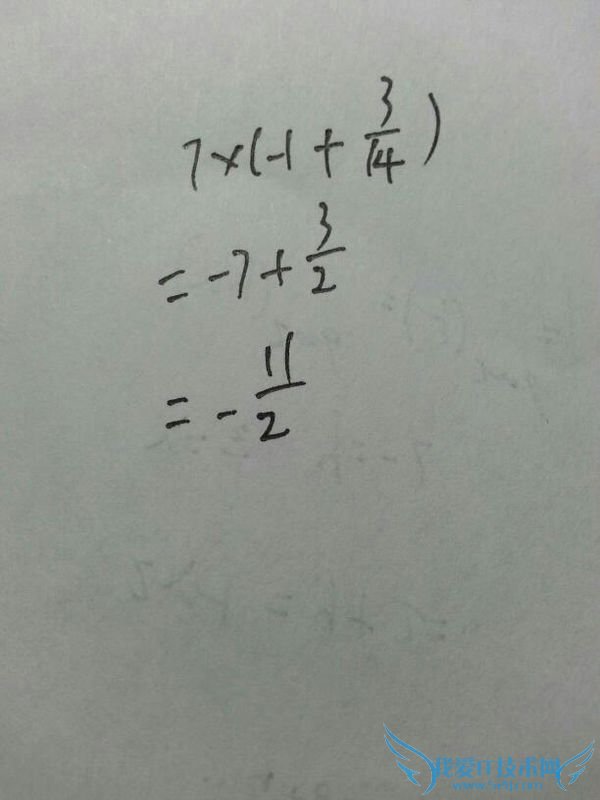 7×(-1+3/14)
=-7+3/2
=-11/2
我爱IT技术网